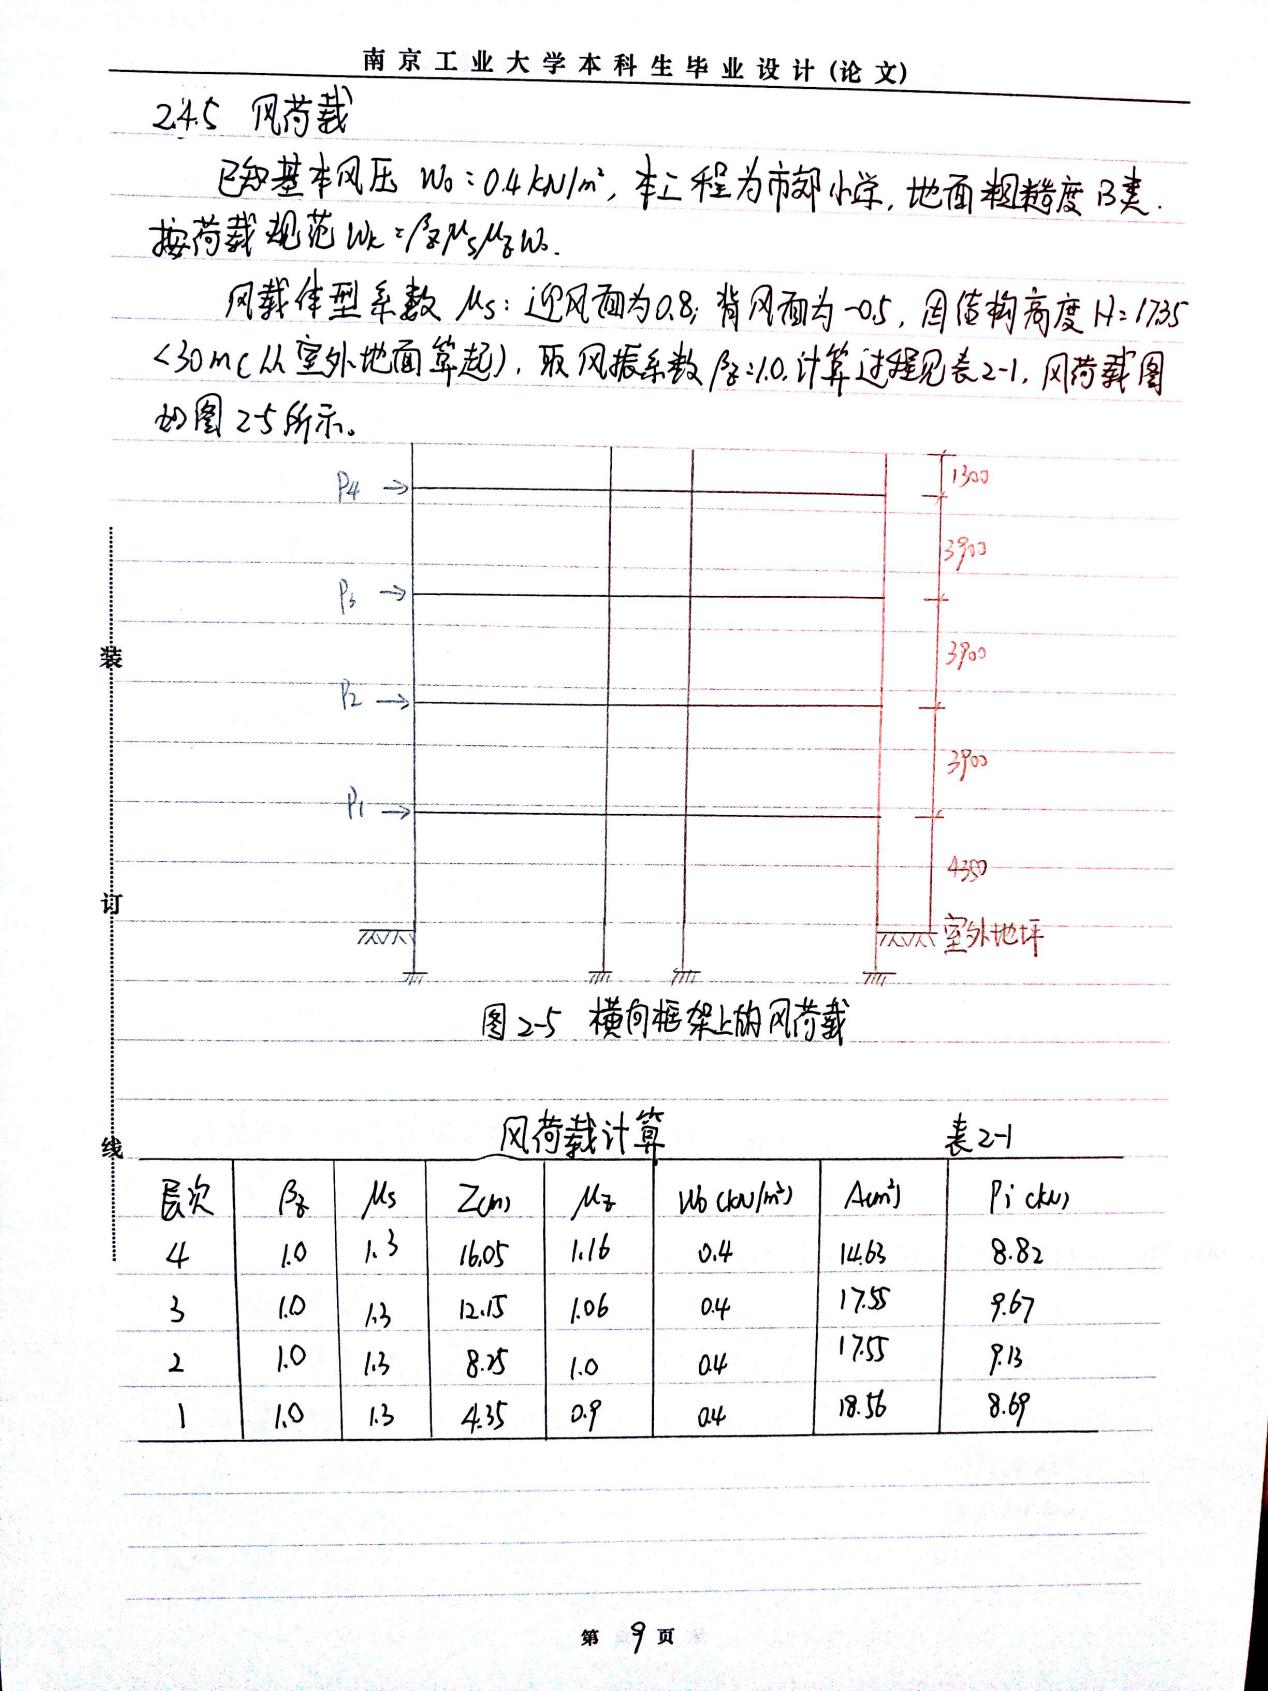 南京工业大学本科生毕业设计(论文)
2.4.5 风荷载
已知基本风压 W₀=0.4kN/m², 本工程为市郊小学, 地面粗糙度B类.
按荷载规范 Wk=βzμsμzW₀.
风载体型系数 μs: 迎风面为0.8; 背风面为-0.5, 因结构高度 H=17.35
<30m(从室外地面算起), 取风振系数 βz=1.0. 计算过程见表2-1, 风荷载图
如图2-5所示。
1300
P4 →
3900
P3 →
3900
P2 →
3900
P1 →
4350
室外地坪
图2-5 横向框架上的风荷载
风荷载计算 表2-1
层次 βz μs Z(m) μz W₀(kN/m²) A(m²) Pi(kN)
4 1.0 1.3 16.05 1.16 0.4 14.63 8.82
3 1.0 1.3 12.15 1.06 0.4 17.55 9.67
2 1.0 1.3 8.25 1.0 0.4 17.55 9.13
1 1.0 1.3 4.35 0.9 0.4 18.56 8.69
装
订
线
第 9 页